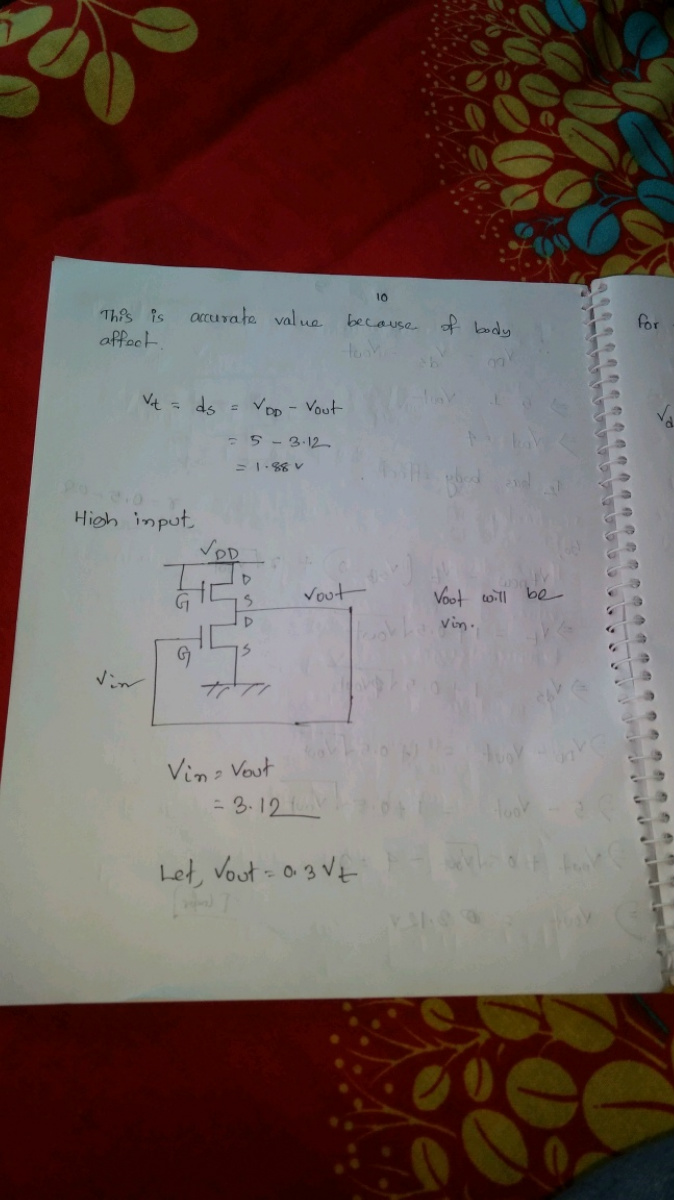 10
This is accurate value because of body
affect.
Vt = ds = VDD - Vout
= 5 - 3.12
= 1.88 v
High input
VDD
D
G
S
Vout
D
G
S
Vin
Vout will be
Vin.
Vin = Vout
= 3.12
Let, Vout = 0.3 Vt
For
Vd